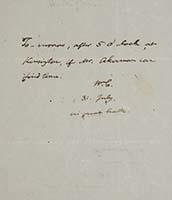 To morrow, after 5 o'clock, at
Kensington, if Mr. Akerman can
find time.
W.C.
31 July.
in great haste